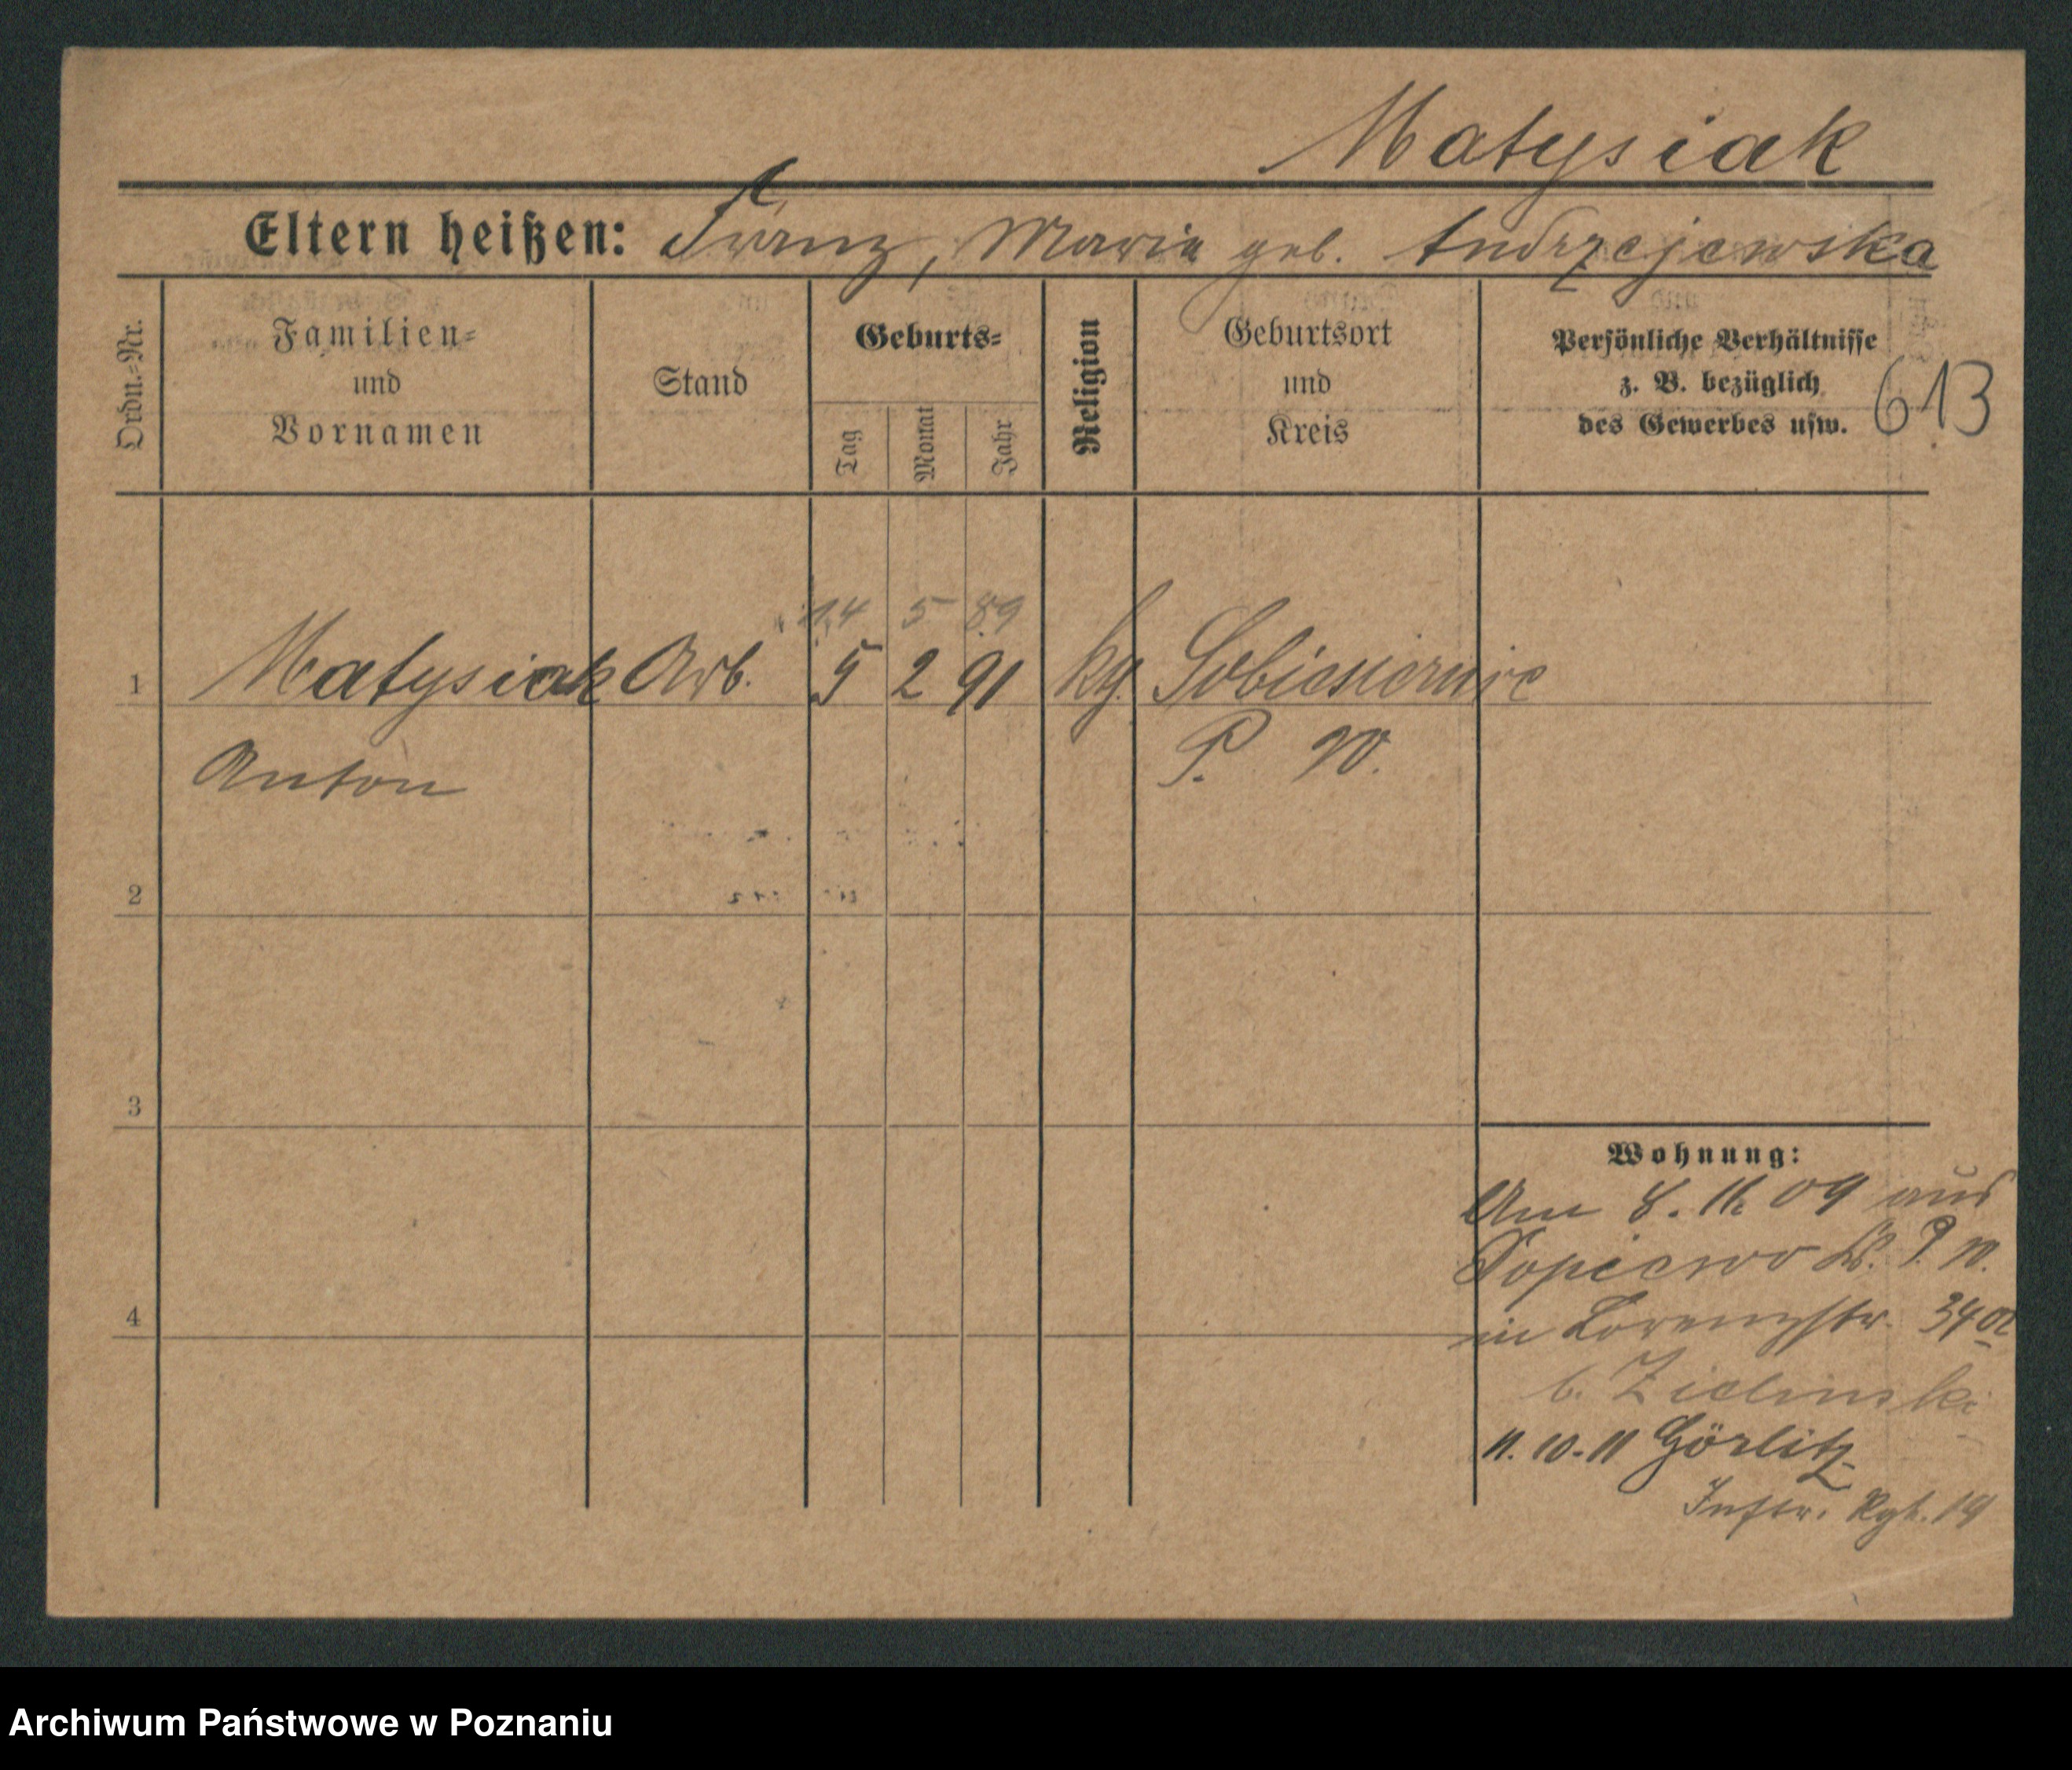 Matysiak
Eltern heißen: Franz, Marie geb. Andrzejewska
Ordn.-Nr.
Familien-
und
Vornamen
Stand
Geburts-
Tag
Monat
Jahr
Religion
Geburtsort
und
Kreis
Persönliche Verhältnisse
z. B. bezüglich
des Gewerbes usw.
613
14 5 89
1 Matysiak Arb. 5 2 91 kg. Sobiesiernie
Anton P. W.
2
3
4
Wohnung:
Am 8. 11. 09 aus
Dopiewo Kr. P. W.
in Lorenzstr. 34 a
b. Zielinski
11. 10. 11 Görlitz
Inftr. Rgt. 19
Archiwum Państwowe w Poznaniu